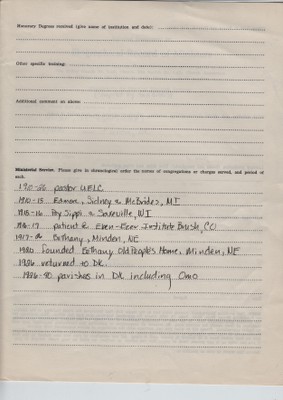 Honorary Degrees received (give name of institution and date):
Other specific training:
Additional comment on above:
Ministerial Service. Please give in chronological order the names of congregations or charges served, and period of
each.
pastor UELC
1910-15 Ramon, Sidney & McBrides, MI
1915-16 Poy Sippi & Saxeville, WI
1916-17 patient @ Even-Eeer Institute Brush, CO
Bethany, Minden, NE
1920 founded Bethany Old People's Home, Minden, NE
1926 returned to DK.
1926-40 parishes in DK including Omo